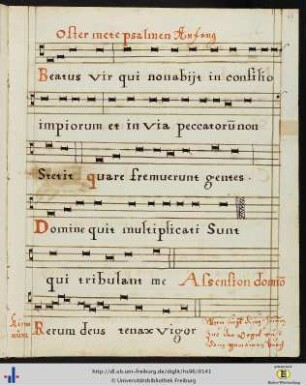 Oster mete psalmen Anfang
Beatus vir qui nonabijt in consilio
impiorum et in via peccatorũ non
Stetit quare fremuerunt gentes.
Domine quit multiplicati Sunt
qui tribulant me Ascension domō
Rerum deus tenax vigor
http://dl.ub.uni-freiburg.de/diglit/hs90/0141
© Universitätsbibliothek Freiburg